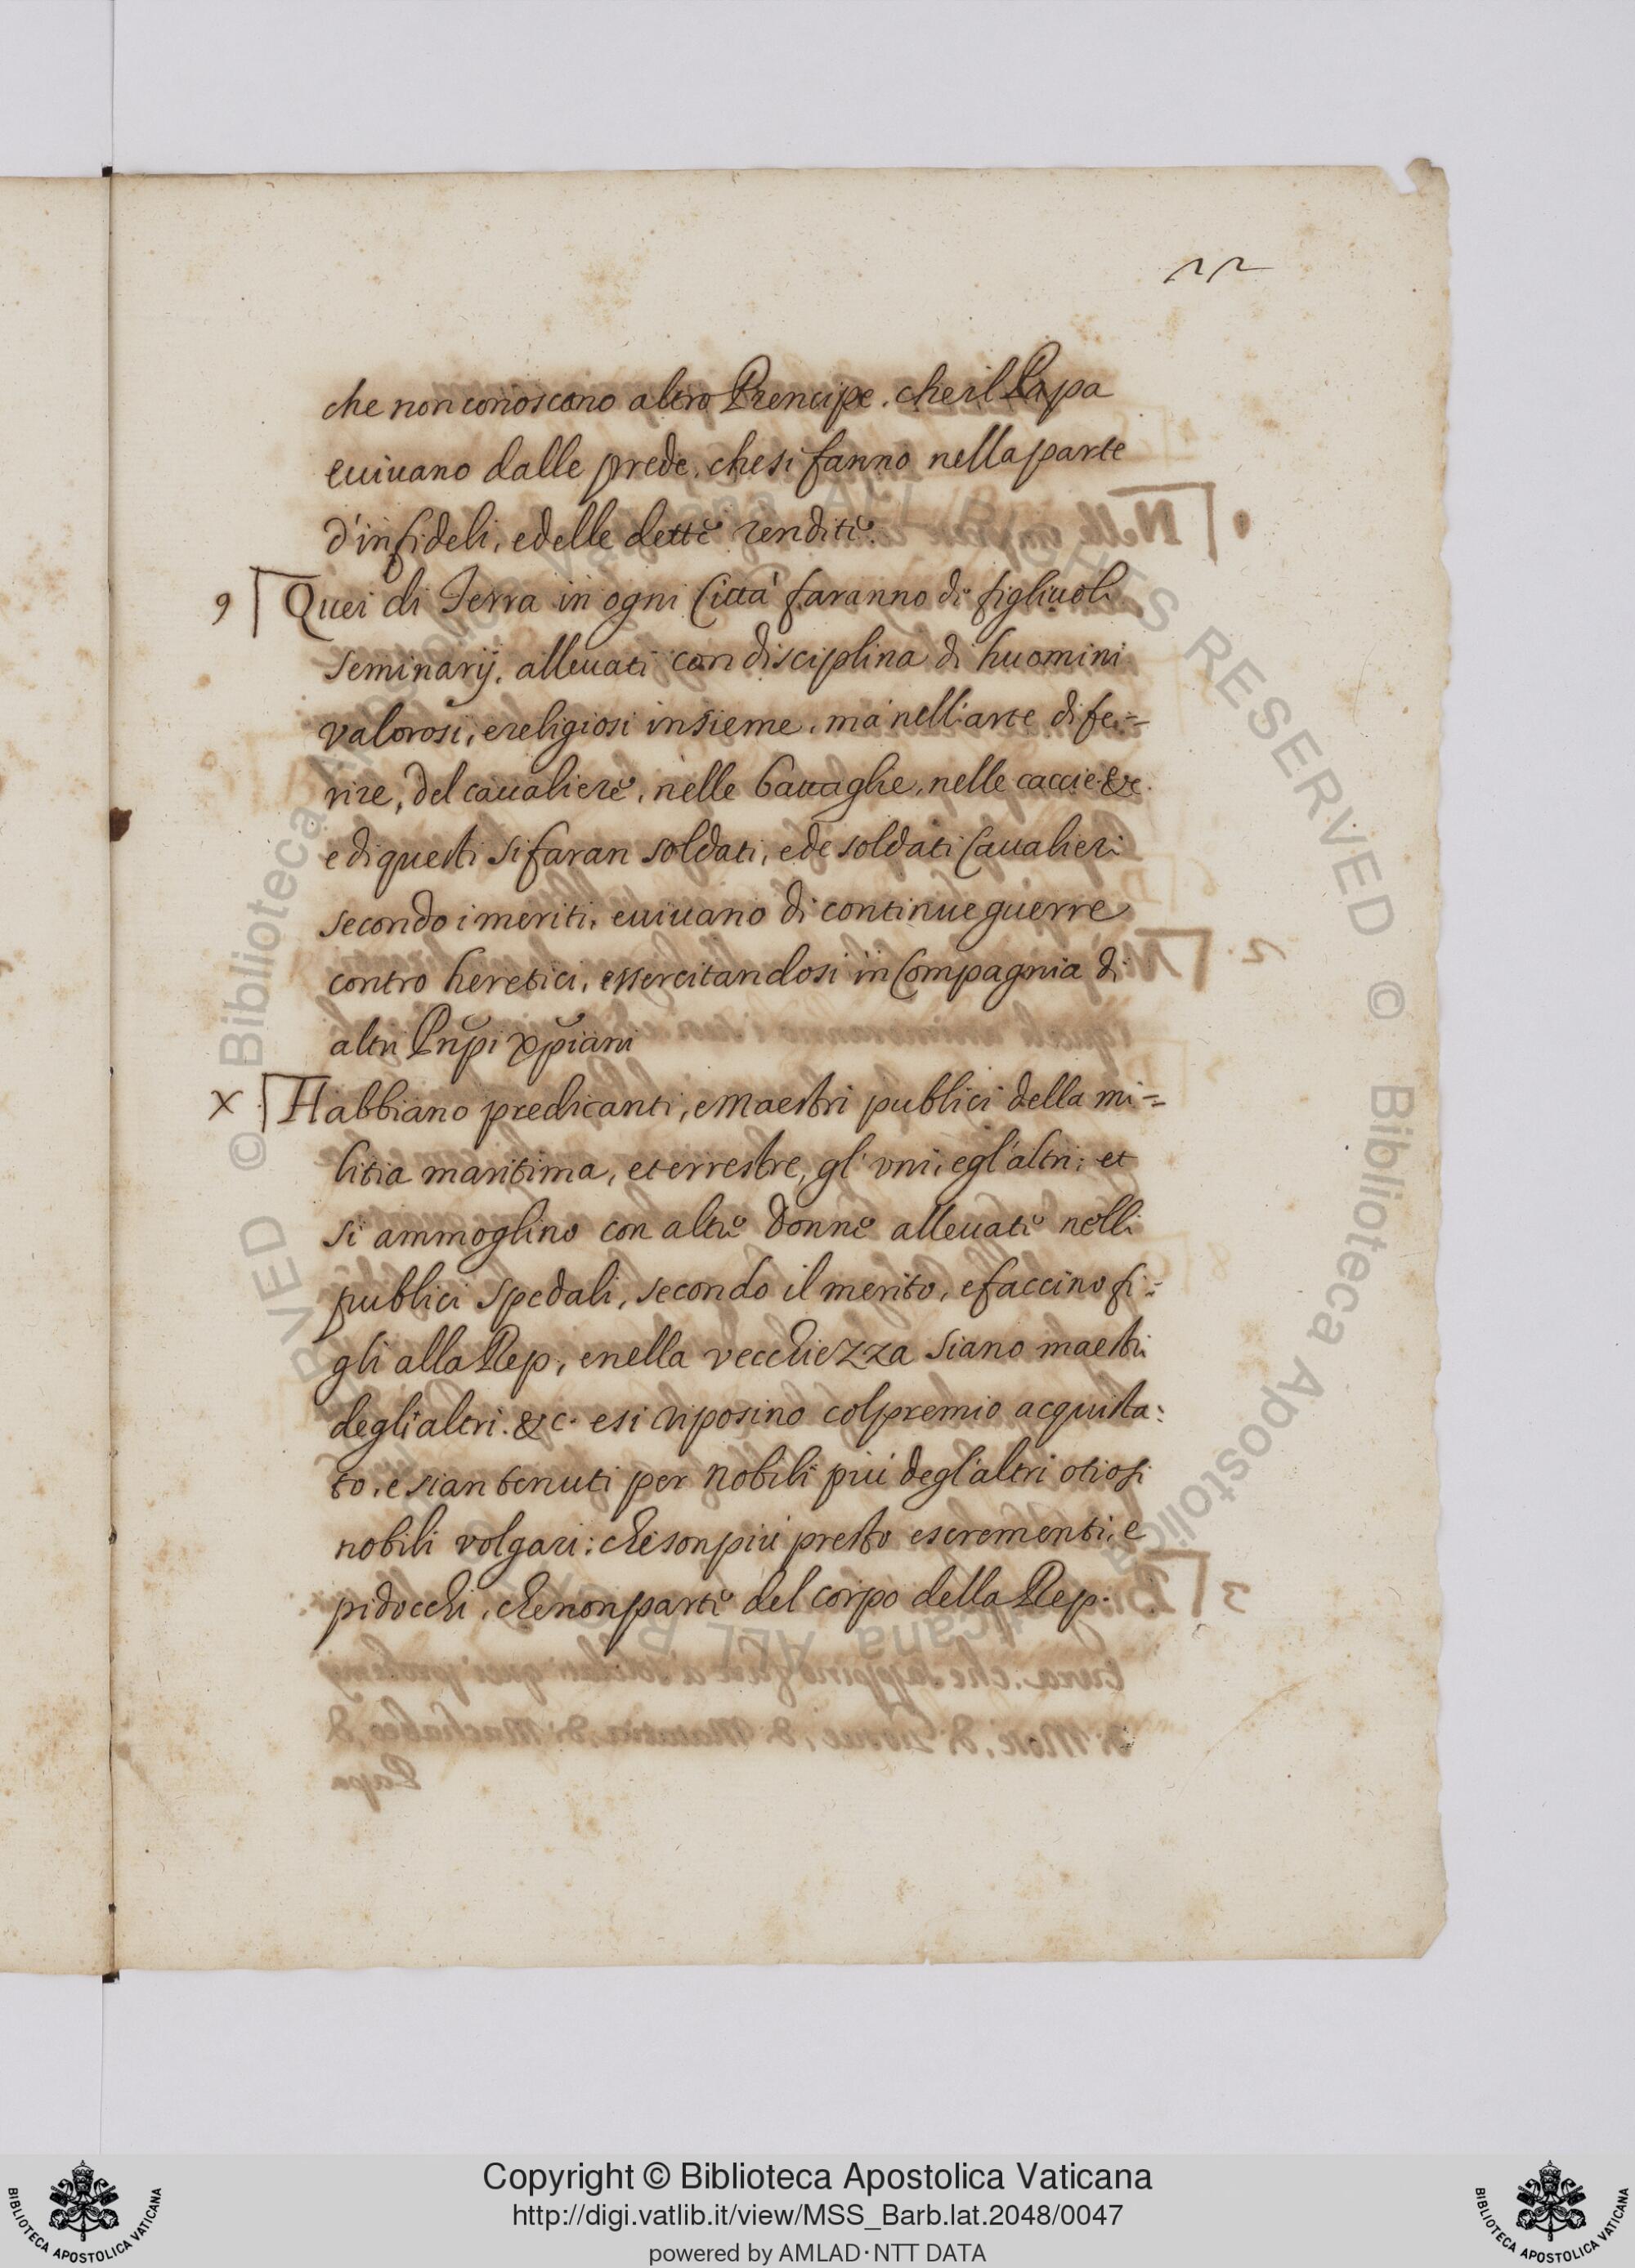 22
che non conoscono altro Prencipe. che il Papa
e uiuano dalle prede, che si fanno nella parte
d'infideli, e delle dette rendite.
9 Quei di Terra in ogni Città faranno di figliuoli
seminarij, alleuati con disciplina di huomini
valorosi, e religiosi insieme, mà nell'arte di fe=
rire, del caualiere, nelle battaglie, nelle caccie &c.
e di questi si faran soldati, e de soldati Caualieri
secondo i meriti, e uiuano di continue guerre
contro heretici, essercitandosi in Compagnia di
altri Prnpi xpiani
X Habbiano predicanti, e Maestri publici della mi=
litia maritima, e terrestre, gl'vni, e gl'altri; et
si ammoglino con altre donne alleuate nelli
publici spedali, secondo il merito, e faccino fi=
gli alla Rep, e nella vecchiezza siano maestri
degli altri. &c. e si riposino col premio acquista:
to, e sian tenuti per nobili più degl'altri otiosi
nobili volgari: che son più presto escrementi, e
pidocchi, che non parte del corpo della Rep.
Copyright © Biblioteca Apostolica Vaticana
http://digi.vatlib.it/view/MSS_Barb.lat.2048/0047
powered by AMLAD·NTT DATA
BIBLIOTECA APOSTOLICA VATICANA
BIBLIOTECA APOSTOLICA VATICANA